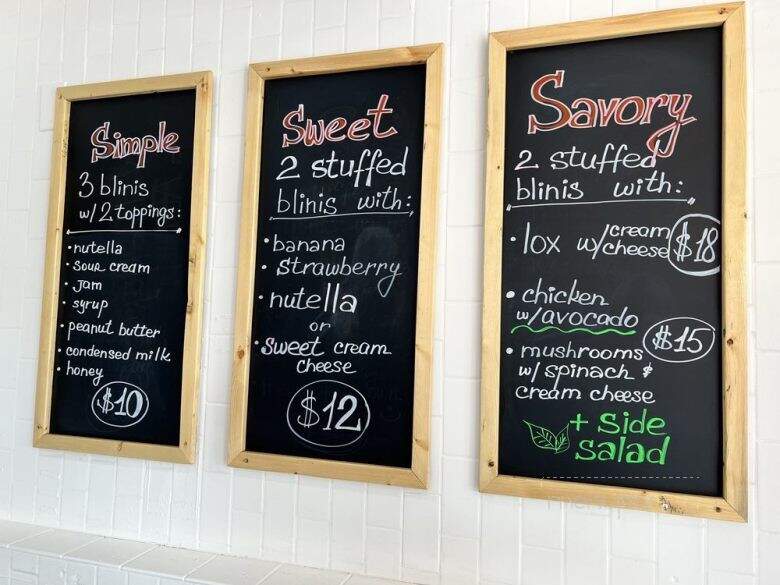 Simple
3 blinis
w/ 2 toppings:
• nutella
• sour cream
• jam
• syrup
• peanut butter
• condensed milk
• honey
$10
Sweet
2 stuffed
blinis with:
• banana
• strawberry
• nutella
or
• sweet cream
cheese
$12
Savory
2 stuffed
blinis with:
• lox w/cream
w/cheese $18
• chicken
w/avocado
$15
• mushrooms
w/ spinach &
cream cheese
+ Side
Salad